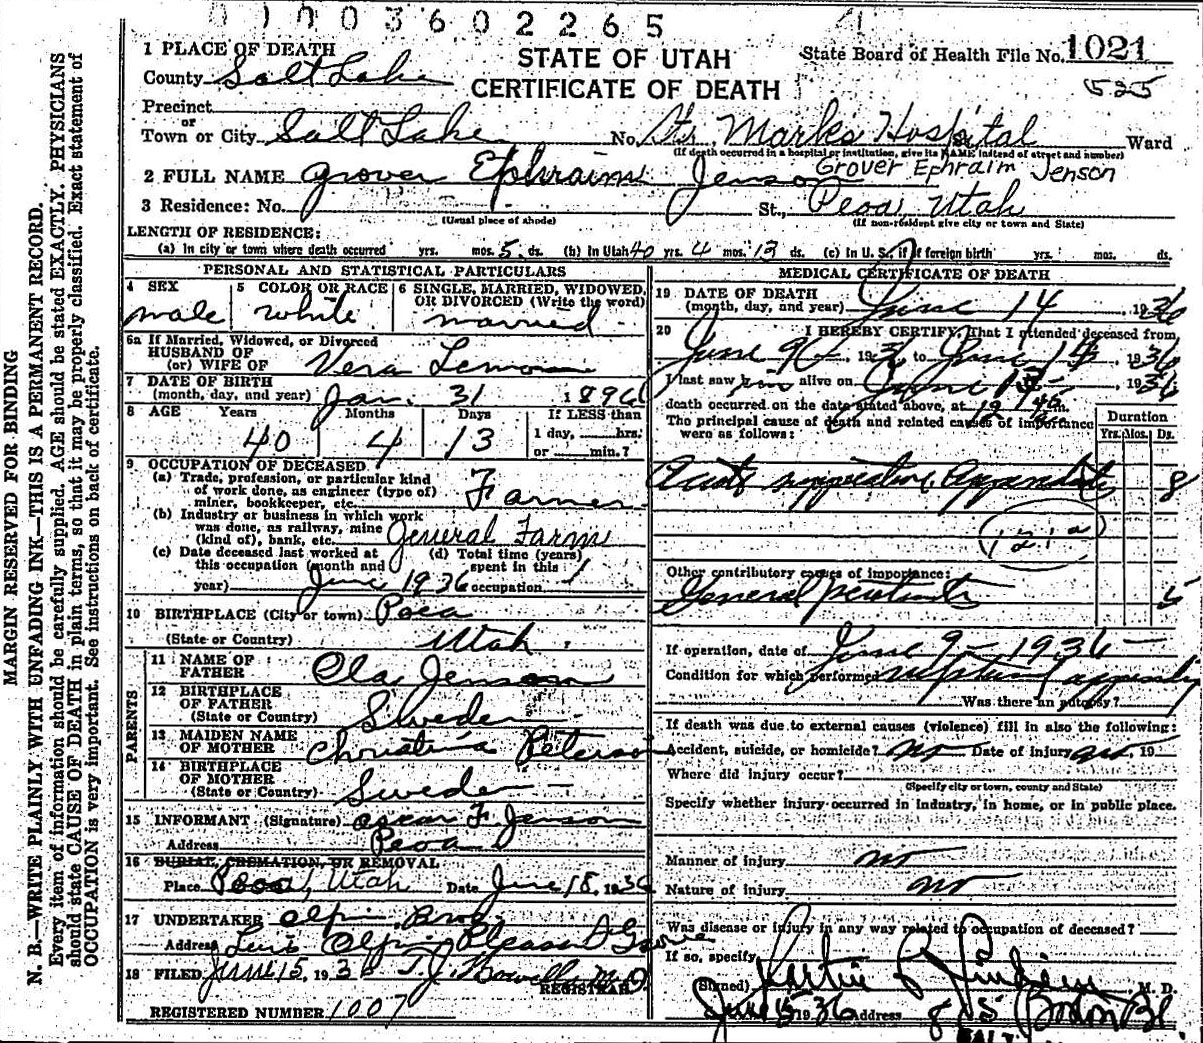 01003602265
STATE OF UTAH
CERTIFICATE OF DEATH
State Board of Health File No. 1021
525
MARGIN RESERVED FOR BINDING
N. B.—WRITE PLAINLY WITH UNFADING INK—THIS IS A PERMANENT RECORD.
Every item of information should be carefully supplied. AGE should be stated EXACTLY. PHYSICIANS
should state CAUSE OF DEATH in plain terms, so that it may be properly classified. Exact statement of
OCCUPATION is very important. See instructions on back of certificate.
1 PLACE OF DEATH
County Salt Lake
Precinct
or
Town or City Salt Lake No. St. Marks Hospital Ward
(If death occurred in a hospital or institution, give its NAME instead of street and number)
2 FULL NAME Grover Ephraim Jenson Grover Ephraim Jenson
3 Residence: No. St., Peoa, Utah
(Usual place of abode) (If non-resident give city or town and State)
LENGTH OF RESIDENCE:
(a) In city or town where death occurred yrs. mos. 5 ds. (b) In Utah 40 yrs. 4 mos. 13 ds. (c) In U. S., if of foreign birth yrs. mos. ds.
PERSONAL AND STATISTICAL PARTICULARS
4 SEX 5 COLOR OR RACE 6 SINGLE, MARRIED, WIDOWED,
OR DIVORCED (Write the word)
male white married
6a If Married, Widowed, or Divorced
HUSBAND OF
(or) WIFE OF Vera Lemon
7 DATE OF BIRTH
(month, day, and year) Jan. 31 1896
8 AGE Years Months Days If LESS than
40 4 13 1 day, hrs.
or min.?
9 OCCUPATION OF DECEASED
(a) Trade, profession, or particular kind
of work done, as engineer (type of)
miner, bookkeeper, etc. Farmer
(b) Industry or business in which work
was done, as railway, mine
(kind of), bank, etc. General Farm
(c) Date deceased last worked at (d) Total time (years)
this occupation (month and spent in this
year) June 1936 occupation
10 BIRTHPLACE (City or town) Peoa
(State or Country) Utah
PARENTS
11 NAME OF
FATHER Ola Jenson
12 BIRTHPLACE
OF FATHER
(State or Country) Sweden
13 MAIDEN NAME
OF MOTHER Christina Peterson
14 BIRTHPLACE
OF MOTHER
(State or Country) Sweden
15 INFORMANT (Signature) Oscar F. Jenson
Address Peoa
16 BURIAL, CREMATION, OR REMOVAL
Place Peoa, Utah Date June 18, 1936
17 UNDERTAKER Olpin Bros
Address Pleasant Grove
18 FILED June 15, 1936 T. J. M.D.
REGISTRAR
REGISTERED NUMBER 1007
MEDICAL CERTIFICATE OF DEATH
19 DATE OF DEATH
(month, day, and year) June 14, 1936
20 I HEREBY CERTIFY, That I attended deceased from
June 9, 1936 to June 14, 1936
I last saw him alive on June, 1936
death occurred on the date stated above, at 12 m.
The principal cause of death and related causes of importance
were as follows:
Duration
Yrs. Mos. Ds.
8
121a
Other contributory causes of importance:
General peritonitis 5
If operation, date of June 9 - 1936
Condition for which performed
Was there an autopsy?
If death was due to external causes (violence) fill in also the following:
Accident, suicide, or homicide? no Date of injury 19
Where did injury occur?
(Specify city or town, county and State)
Specify whether injury occurred in industry, in home, or in public place.
Manner of injury no
Nature of injury no
Was disease or injury in any way related to occupation of deceased?
If so, specify
(Signed) M. D.
June 15 1936 Address Boston Bl